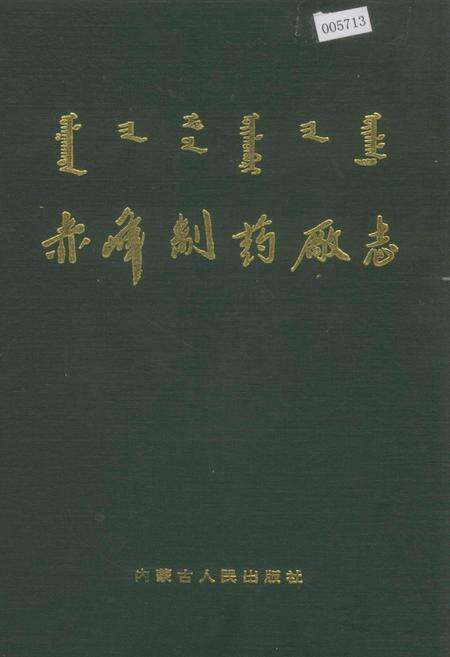 005713
赤峰制药厂志
内蒙古人民出版社